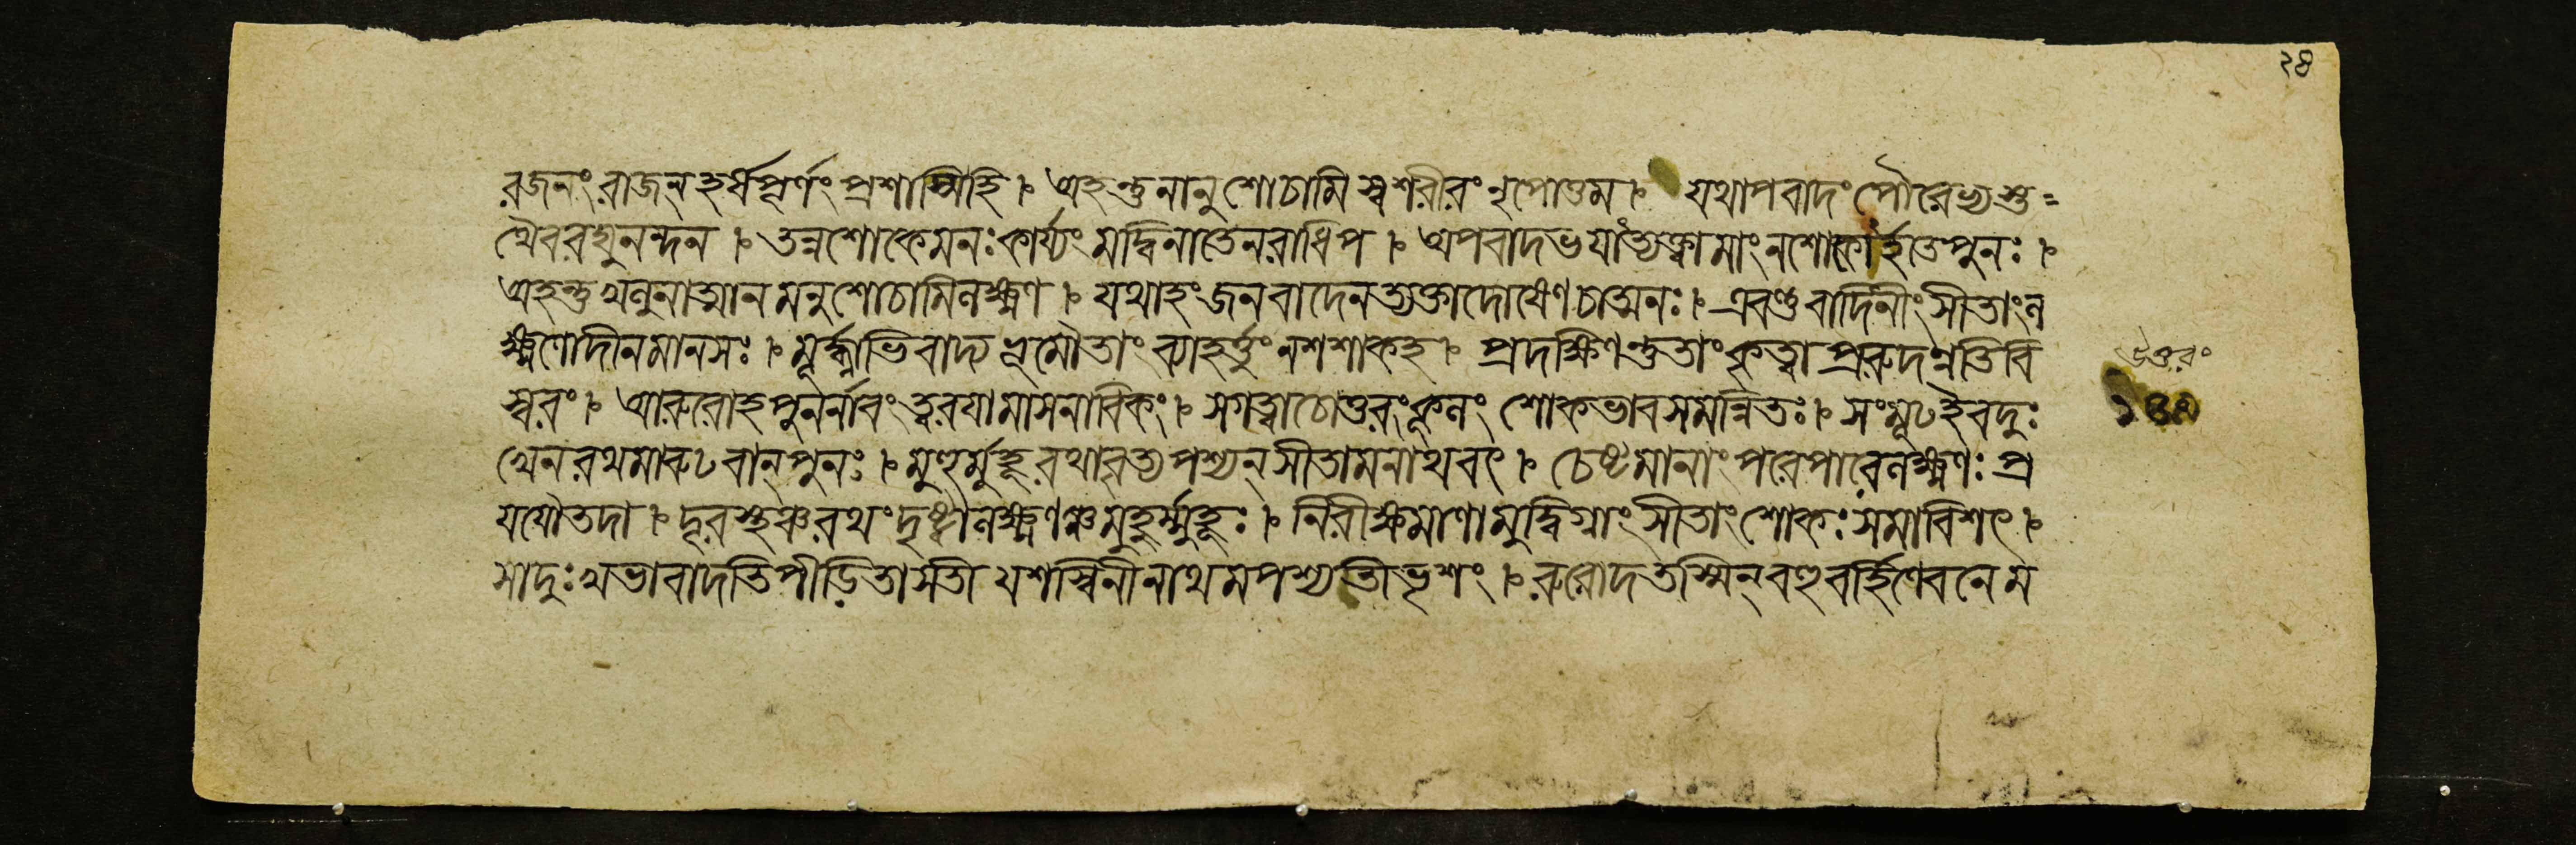 ২৪
রজনং রাজন্ হর্ষপূর্ণং প্রশাম্মিহি । অহন্তু নানুশোচামি স্বশরীরং নৃপোত্তম । যথাপবাদং পৌরেভ্যস্ত
থৈব রঘুনন্দন । তন্ন শোকে মনঃ কার্য্যং মদ্বিনাতে নরাধিপ । অপবাদভযাত্ত্যক্ত্বা মাং ন শোকার্হতে পুনঃ ।
অহন্তু খলু নাত্মান মনুশোচামি লক্ষ্মণ । যথাহং জনবাদেন ত্যক্তা দোষেণ চাত্মনঃ । এবন্তু বাদিনীং সীতাং ল
ক্ষ্মণো দীনমানসঃ । মূর্দ্ধ্নাভিবাদ্য ভূমৌ তাং ব্যাহর্ত্তুং ন শশাক হ । প্রদক্ষিণন্তু তাং কৃত্বা প্ররুদন্নতিবি
স্বরং । আরুরোহ পুনর্নাবং ত্বরযামাস নাবিকং । স গত্বা চোত্তরং কূলং শোকভাবসমন্বিতঃ । সংমূঢ ইব দুঃ
খেন রথমারুঢবান্ পুনঃ । মুহুর্মুহূ রথাবৃত্য পশ্যন্ সীতামনাথবৎ । চেষ্টমানাং পরে পারে লক্ষ্মণঃ প্র
যযৌ তদা । দূরস্থঞ্চ রথং দৃষ্ট্বা লক্ষ্মণঞ্চ মুহুর্ম্মুহূঃ । নিরীক্ষমাণামুদ্বিগ্নাং সীতাং শোকঃ সমাবিশৎ ।
সা দুঃখভাবাদতিপীড়িতা সতী যশস্বিনী নাথমপশ্যতী ভৃশং । রুরোদ তস্মিন্ বহুবর্হিণে বনে ম
উত্তরং